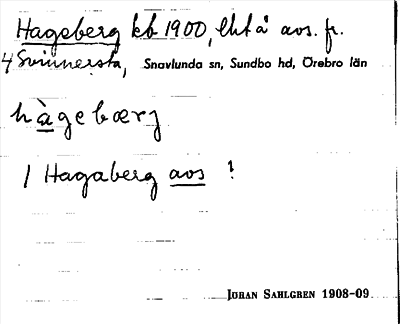 Hageberg kb 1900, lht å avs. fr.
4 Svinnersta, Snavlunda sn, Sundbo hd, Örebro län
hàgebærg
1 Hagaberg avs !
JOHAN SAHLGREN 1908-09